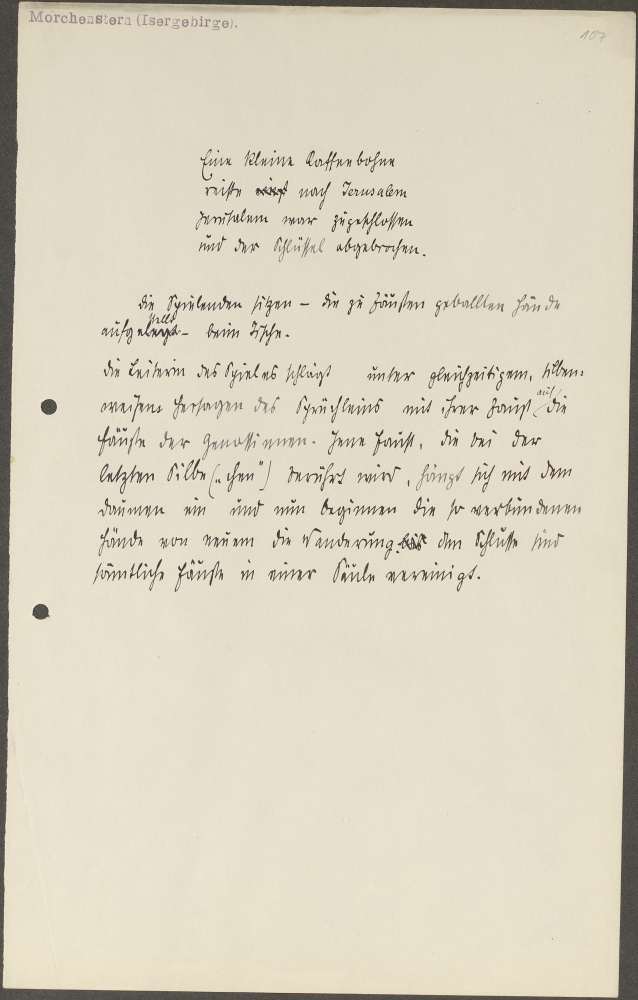 Morchenstern (Isergebirge).
107
Eine kleine Kaffeebohne
reiste nach Jerusalem
Jerusalem war zugeschlossen
und der Schlüssel abgebrochen.
Die Spielenden sitzen – die zu Fäusten geballten Hände
aufgestellt – beim Tische.
Die Leiterin des Spieles schlägt unter gleichzeitigem, silben-
weisen Hersagen des Sprüchleins mit ihrer Faust auf die
Fäuste der Genossinnen. Jene Faust, die bei der
letzten Silbe („chen") berührt wird, hängt sich mit dem
Daumen ein und nun beginnen die so verbundenen
Hände von neuem die Wanderung. Am Schlusse sind
sämtliche Fäuste in einer Säule vereinigt.